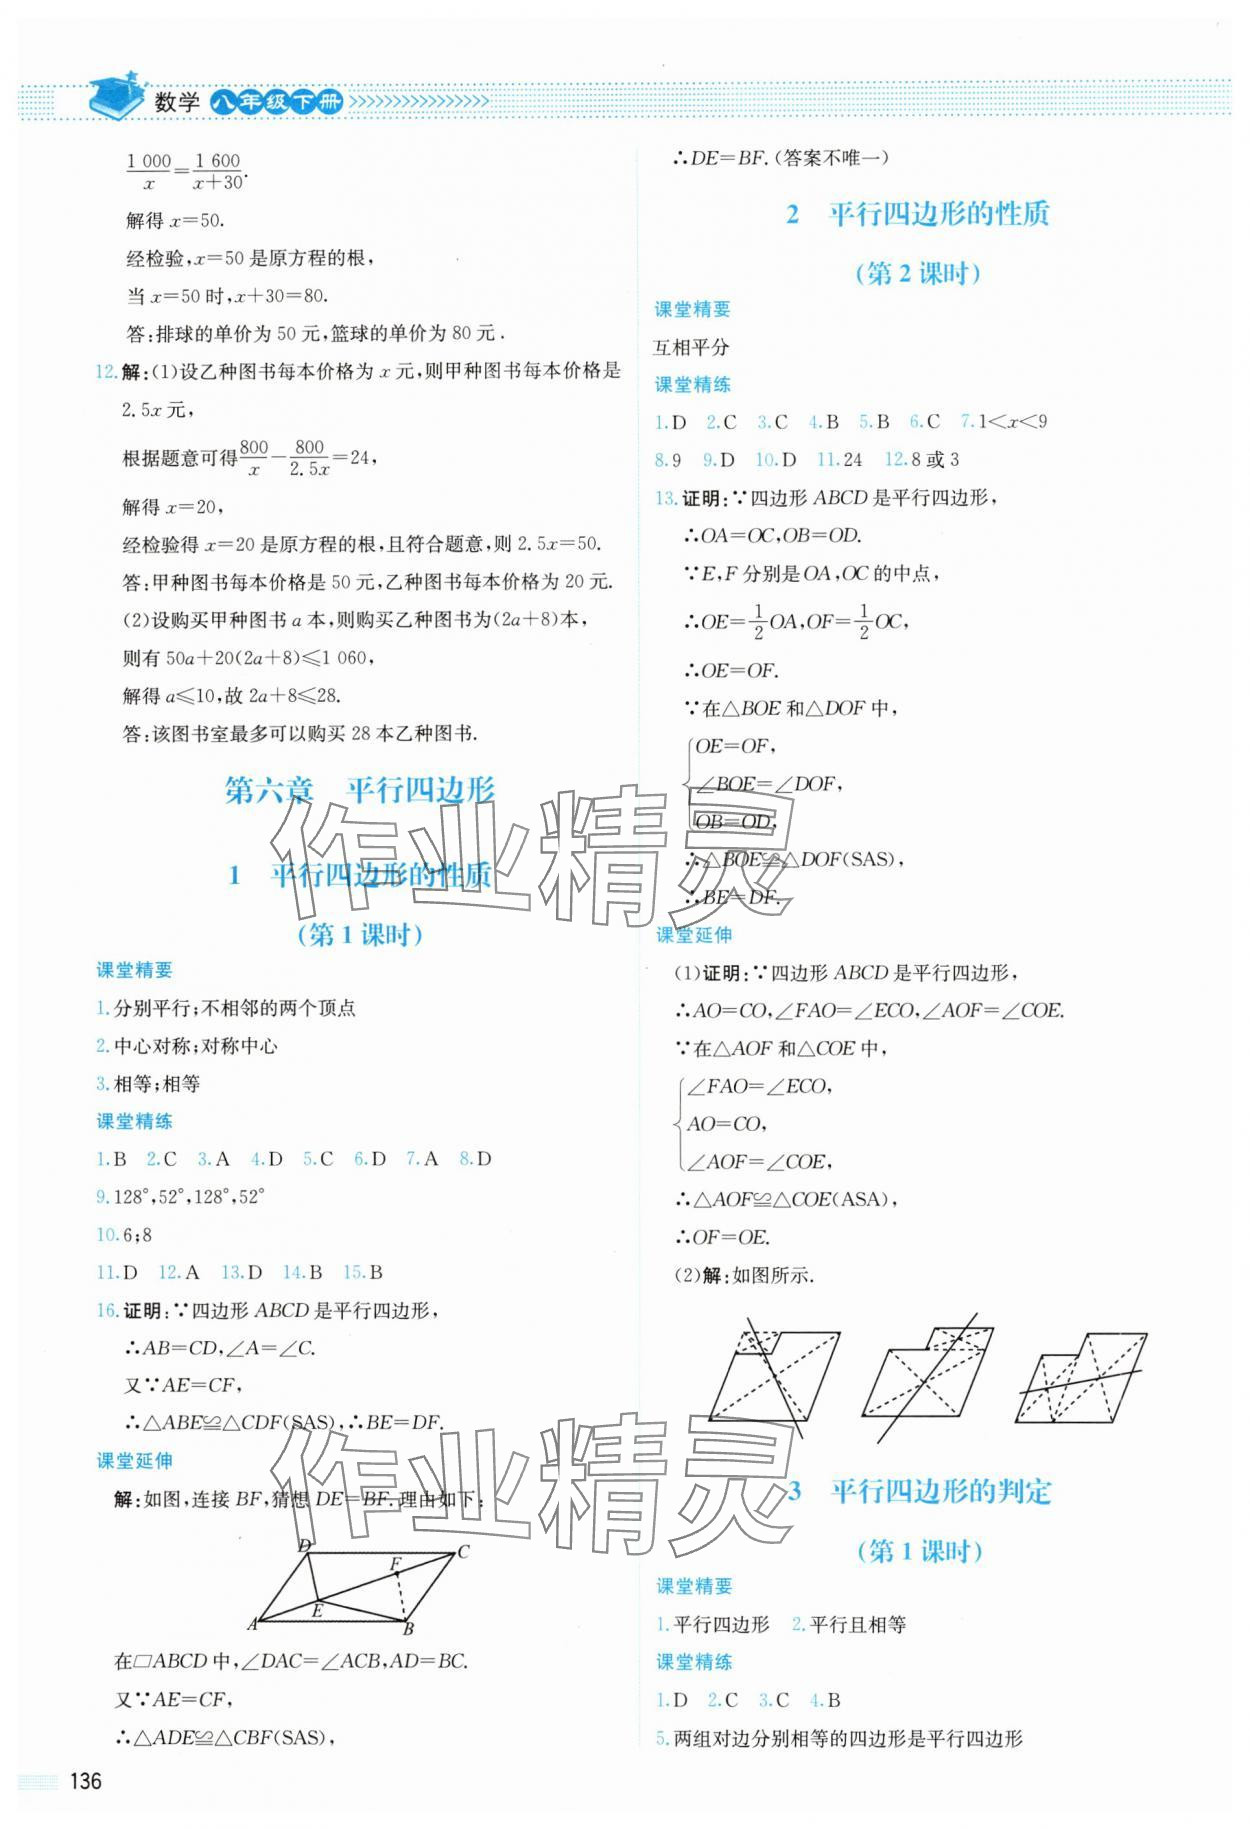 数学 八年级下册
1 000/x=1 600/(x+30).
解得 x=50.
经检验,x=50 是原方程的根,
当 x=50 时,x+30=80.
答:排球的单价为 50 元,篮球的单价为 80 元.
12.解:(1)设乙种图书每本价格为 x 元,则甲种图书每本价格是
2.5x 元,
根据题意可得800/x-800/2.5x=24,
解得 x=20,
经检验得 x=20 是原方程的根,且符合题意,则 2.5x=50.
答:甲种图书每本价格是 50 元,乙种图书每本价格为 20 元.
(2)设购买甲种图书 a 本,则购买乙种图书为(2a+8)本,
则有 50a+20(2a+8)≤1 060,
解得 a≤10,故 2a+8≤28.
答:该图书室最多可以购买 28 本乙种图书.
第六章 平行四边形
1 平行四边形的性质
(第 1 课时)
课堂精要
1.分别平行;不相邻的两个顶点
2.中心对称;对称中心
3.相等;相等
课堂精练
1.B 2.C 3.A 4.D 5.C 6.D 7.A 8.D
9.128°,52°,128°,52°
10.6;8
11.D 12.A 13.D 14.B 15.B
16.证明:∵四边形 ABCD 是平行四边形,
∴AB=CD,∠A=∠C.
又∵AE=CF,
∴△ABE≌△CDF(SAS),∴BE=DF.
课堂延伸
解:如图,连接 BF,猜想 DE=BF.理由如下:
D C F E A B
在□ABCD 中,∠DAC=∠ACB,AD=BC.
又∵AE=CF,
∴△ADE≌△CBF(SAS),
136
∴DE=BF.(答案不唯一)
2 平行四边形的性质
(第 2 课时)
课堂精要
互相平分
课堂精练
1.D 2.C 3.C 4.B 5.B 6.C 7.1<x<9
8.9 9.D 10.D 11.24 12.8 或 3
13.证明:∵四边形 ABCD 是平行四边形,
∴OA=OC,OB=OD.
∵E,F 分别是 OA,OC 的中点,
∴OE=1/2OA,OF=1/2OC,
∴OE=OF.
∵在△BOE 和△DOF 中,
OE=OF,
∠BOE=∠DOF,
OB=OD,
∴△BOE≌△DOF(SAS),
∴BE=DF.
课堂延伸
(1)证明:∵四边形 ABCD 是平行四边形,
∴AO=CO,∠FAO=∠ECO,∠AOF=∠COE.
∵在△AOF 和△COE 中,
∠FAO=∠ECO,
AO=CO,
∠AOF=∠COE,
∴△AOF≌△COE(ASA),
∴OF=OE.
(2)解:如图所示.
3 平行四边形的判定
(第 1 课时)
课堂精要
1.平行四边形 2.平行且相等
课堂精练
1.D 2.C 3.C 4.B
5.两组对边分别相等的四边形是平行四边形
作业精灵
作业精灵